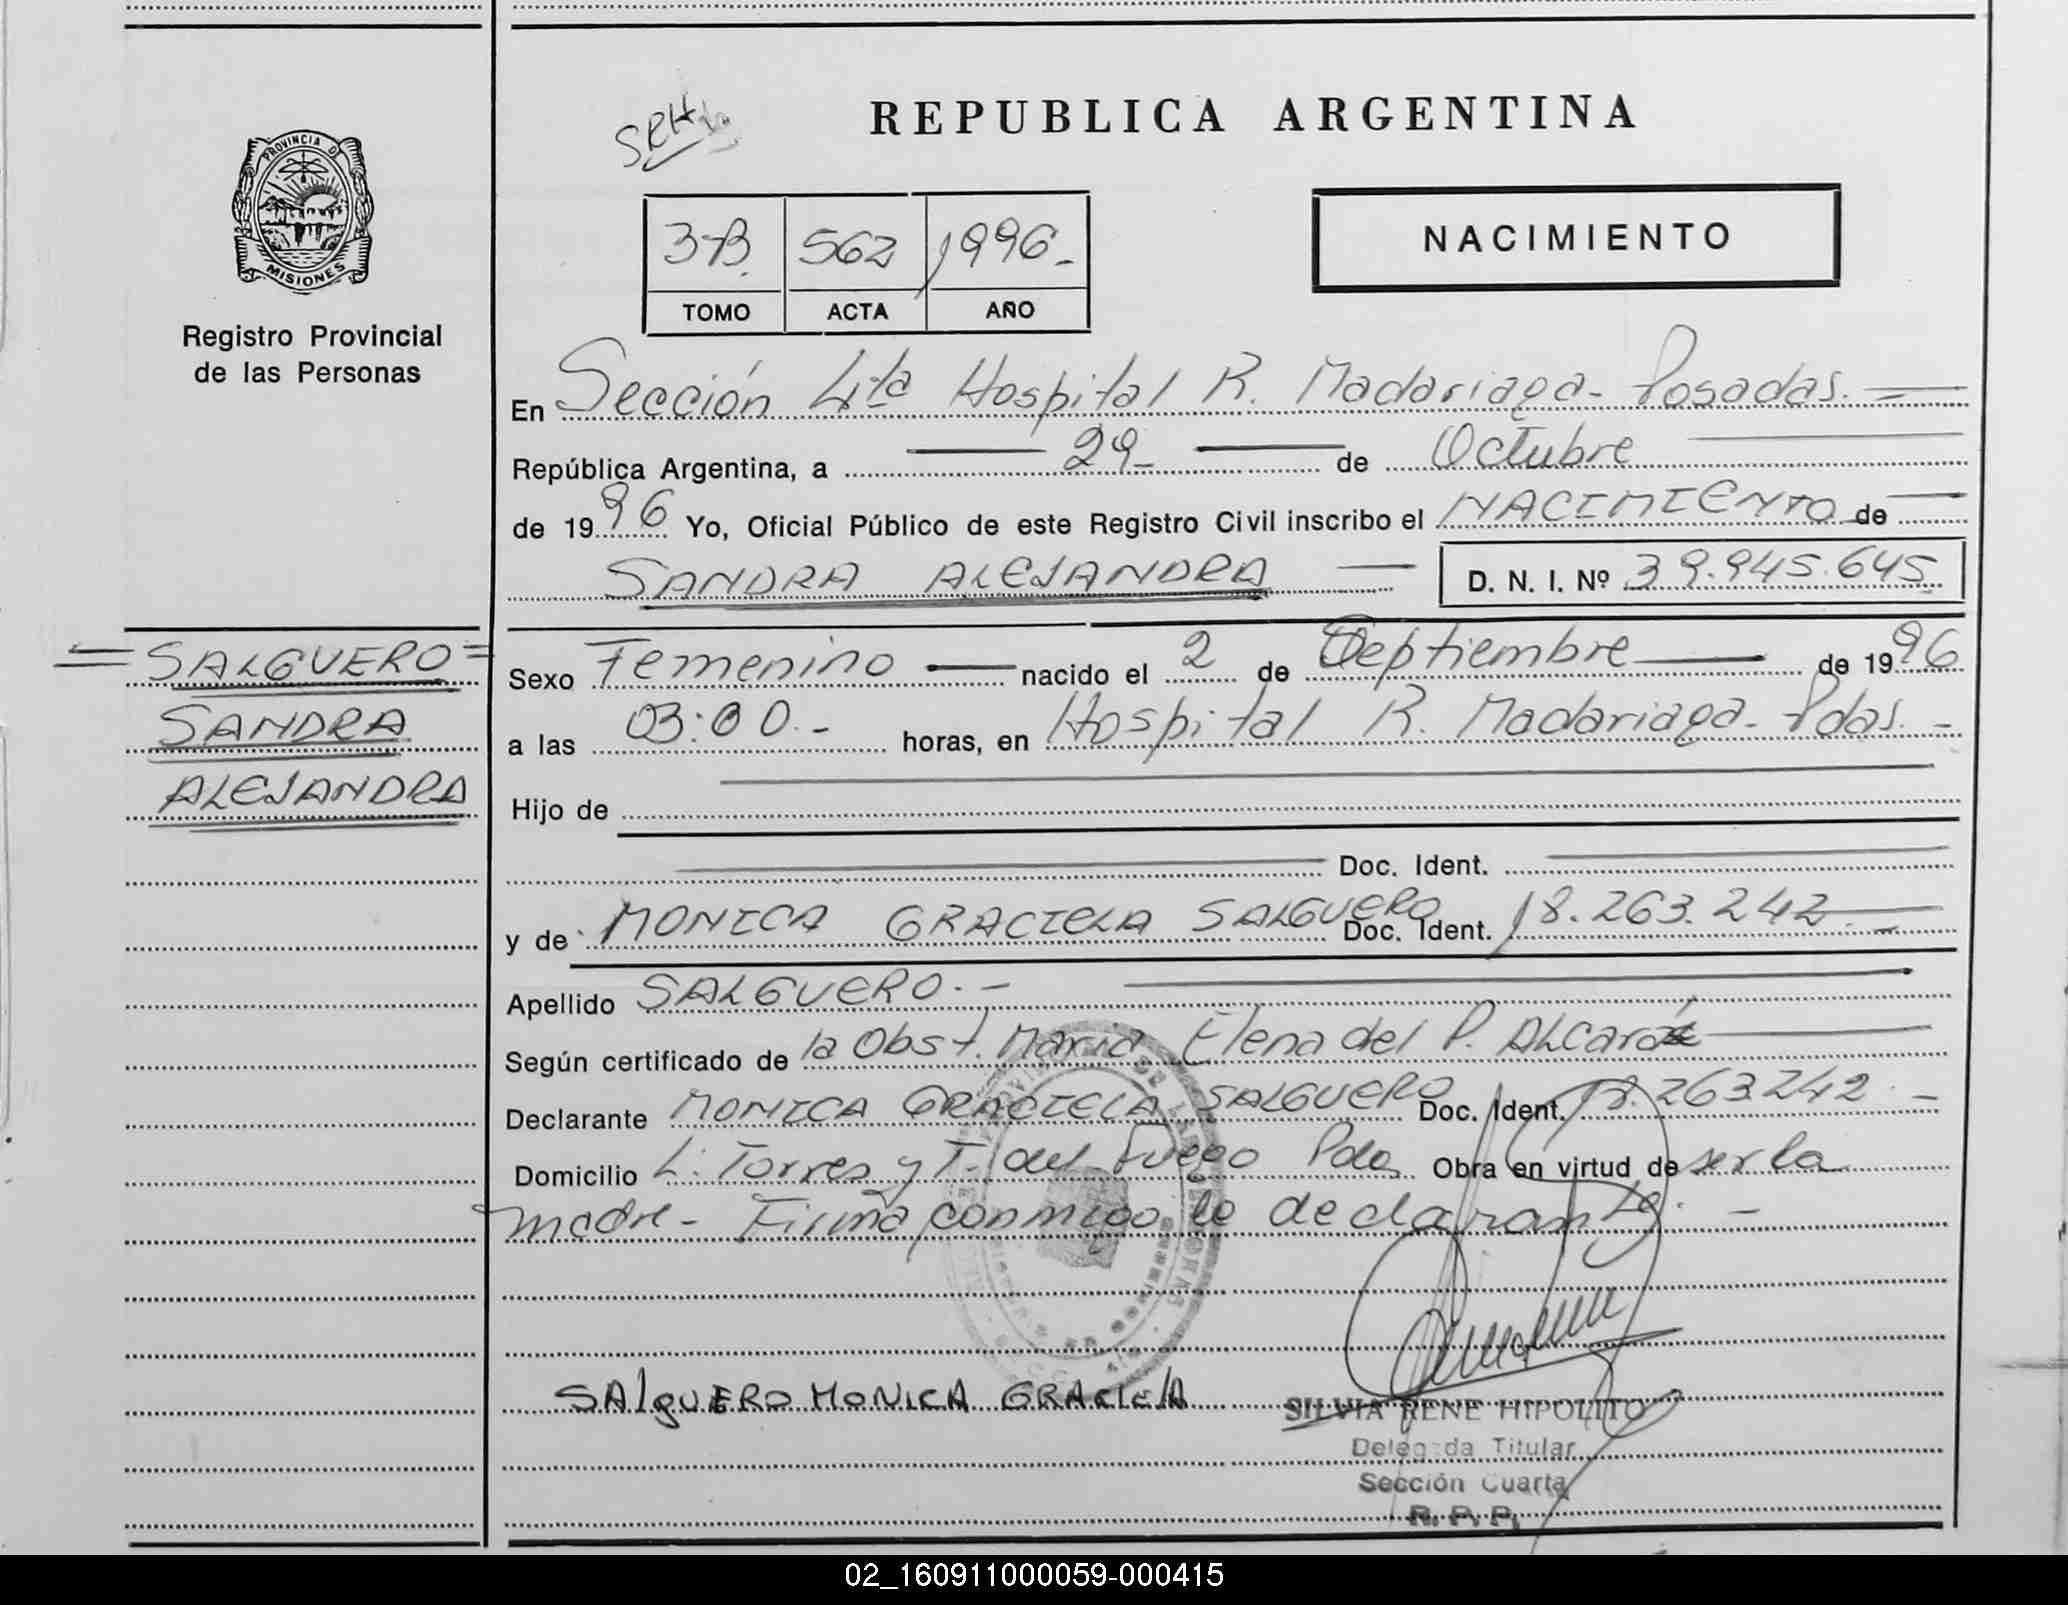 REPUBLICA ARGENTINA
PROVINCIA D
MISIONES
Registro Provincial
de las Personas
3-B. 562 1996.-
TOMO ACTA AÑO
NACIMIENTO
En Sección 4ta Hospital R. Madariaga- Posadas.-
República Argentina, a 29- de Octubre
de 1996 Yo, Oficial Público de este Registro Civil inscribo el NACIMIENTO de
SANDRA ALEJANDRA D. N. I. Nº 39.945.645
SALGUERO
SANDRA
ALEJANDRA
Sexo Femenino nacido el 2 de Septiembre de 1996
a las 03:00.- horas, en Hospital R. Madariaga- Pdas.-
Hijo de
Doc. Ident.
y de MONICA GRACIELA SALGUERO Doc. Ident. 18.263.242.-
Apellido SALGUERO.-
Según certificado de la Obst. Maria Elena del P. Alcaráz
Declarante MONICA GRACIELA SALGUERO Doc. Ident. 18.263.242.-
Domicilio L. Torres y T. del Fuego Pdas Obra en virtud de ser la
madre- Firma conmigo la declarante.-
SAlguERO MONICA GRACIElA
SILVIA RENE HIPOLITO
Delegada Titular
Sección Cuarta
R. P. P.
02_160911000059-000415